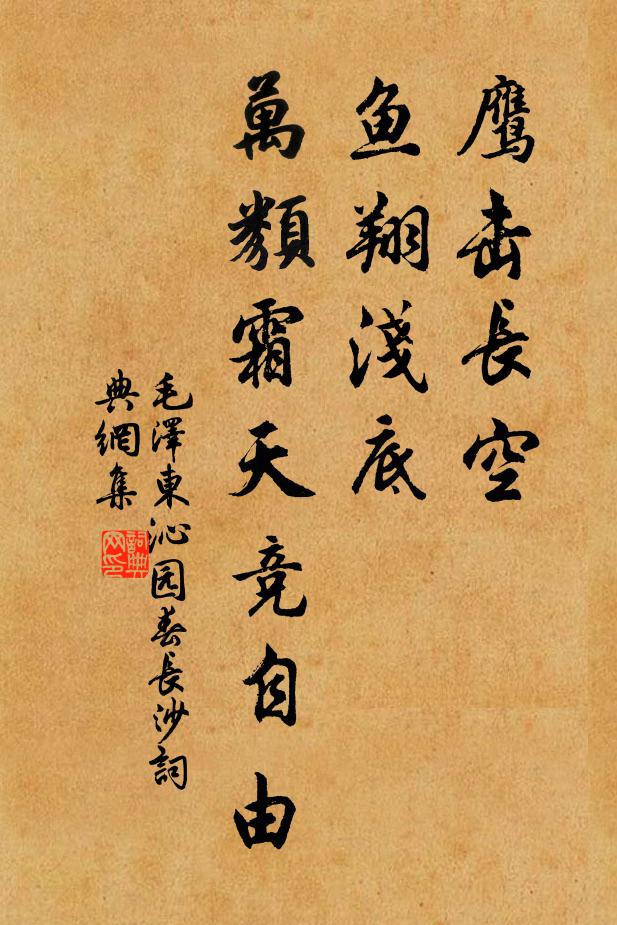 鹰击長空
鱼翔淺底
萬類霜天竞自由
毛澤東沁园春長沙詞
典網集
詞典
网印